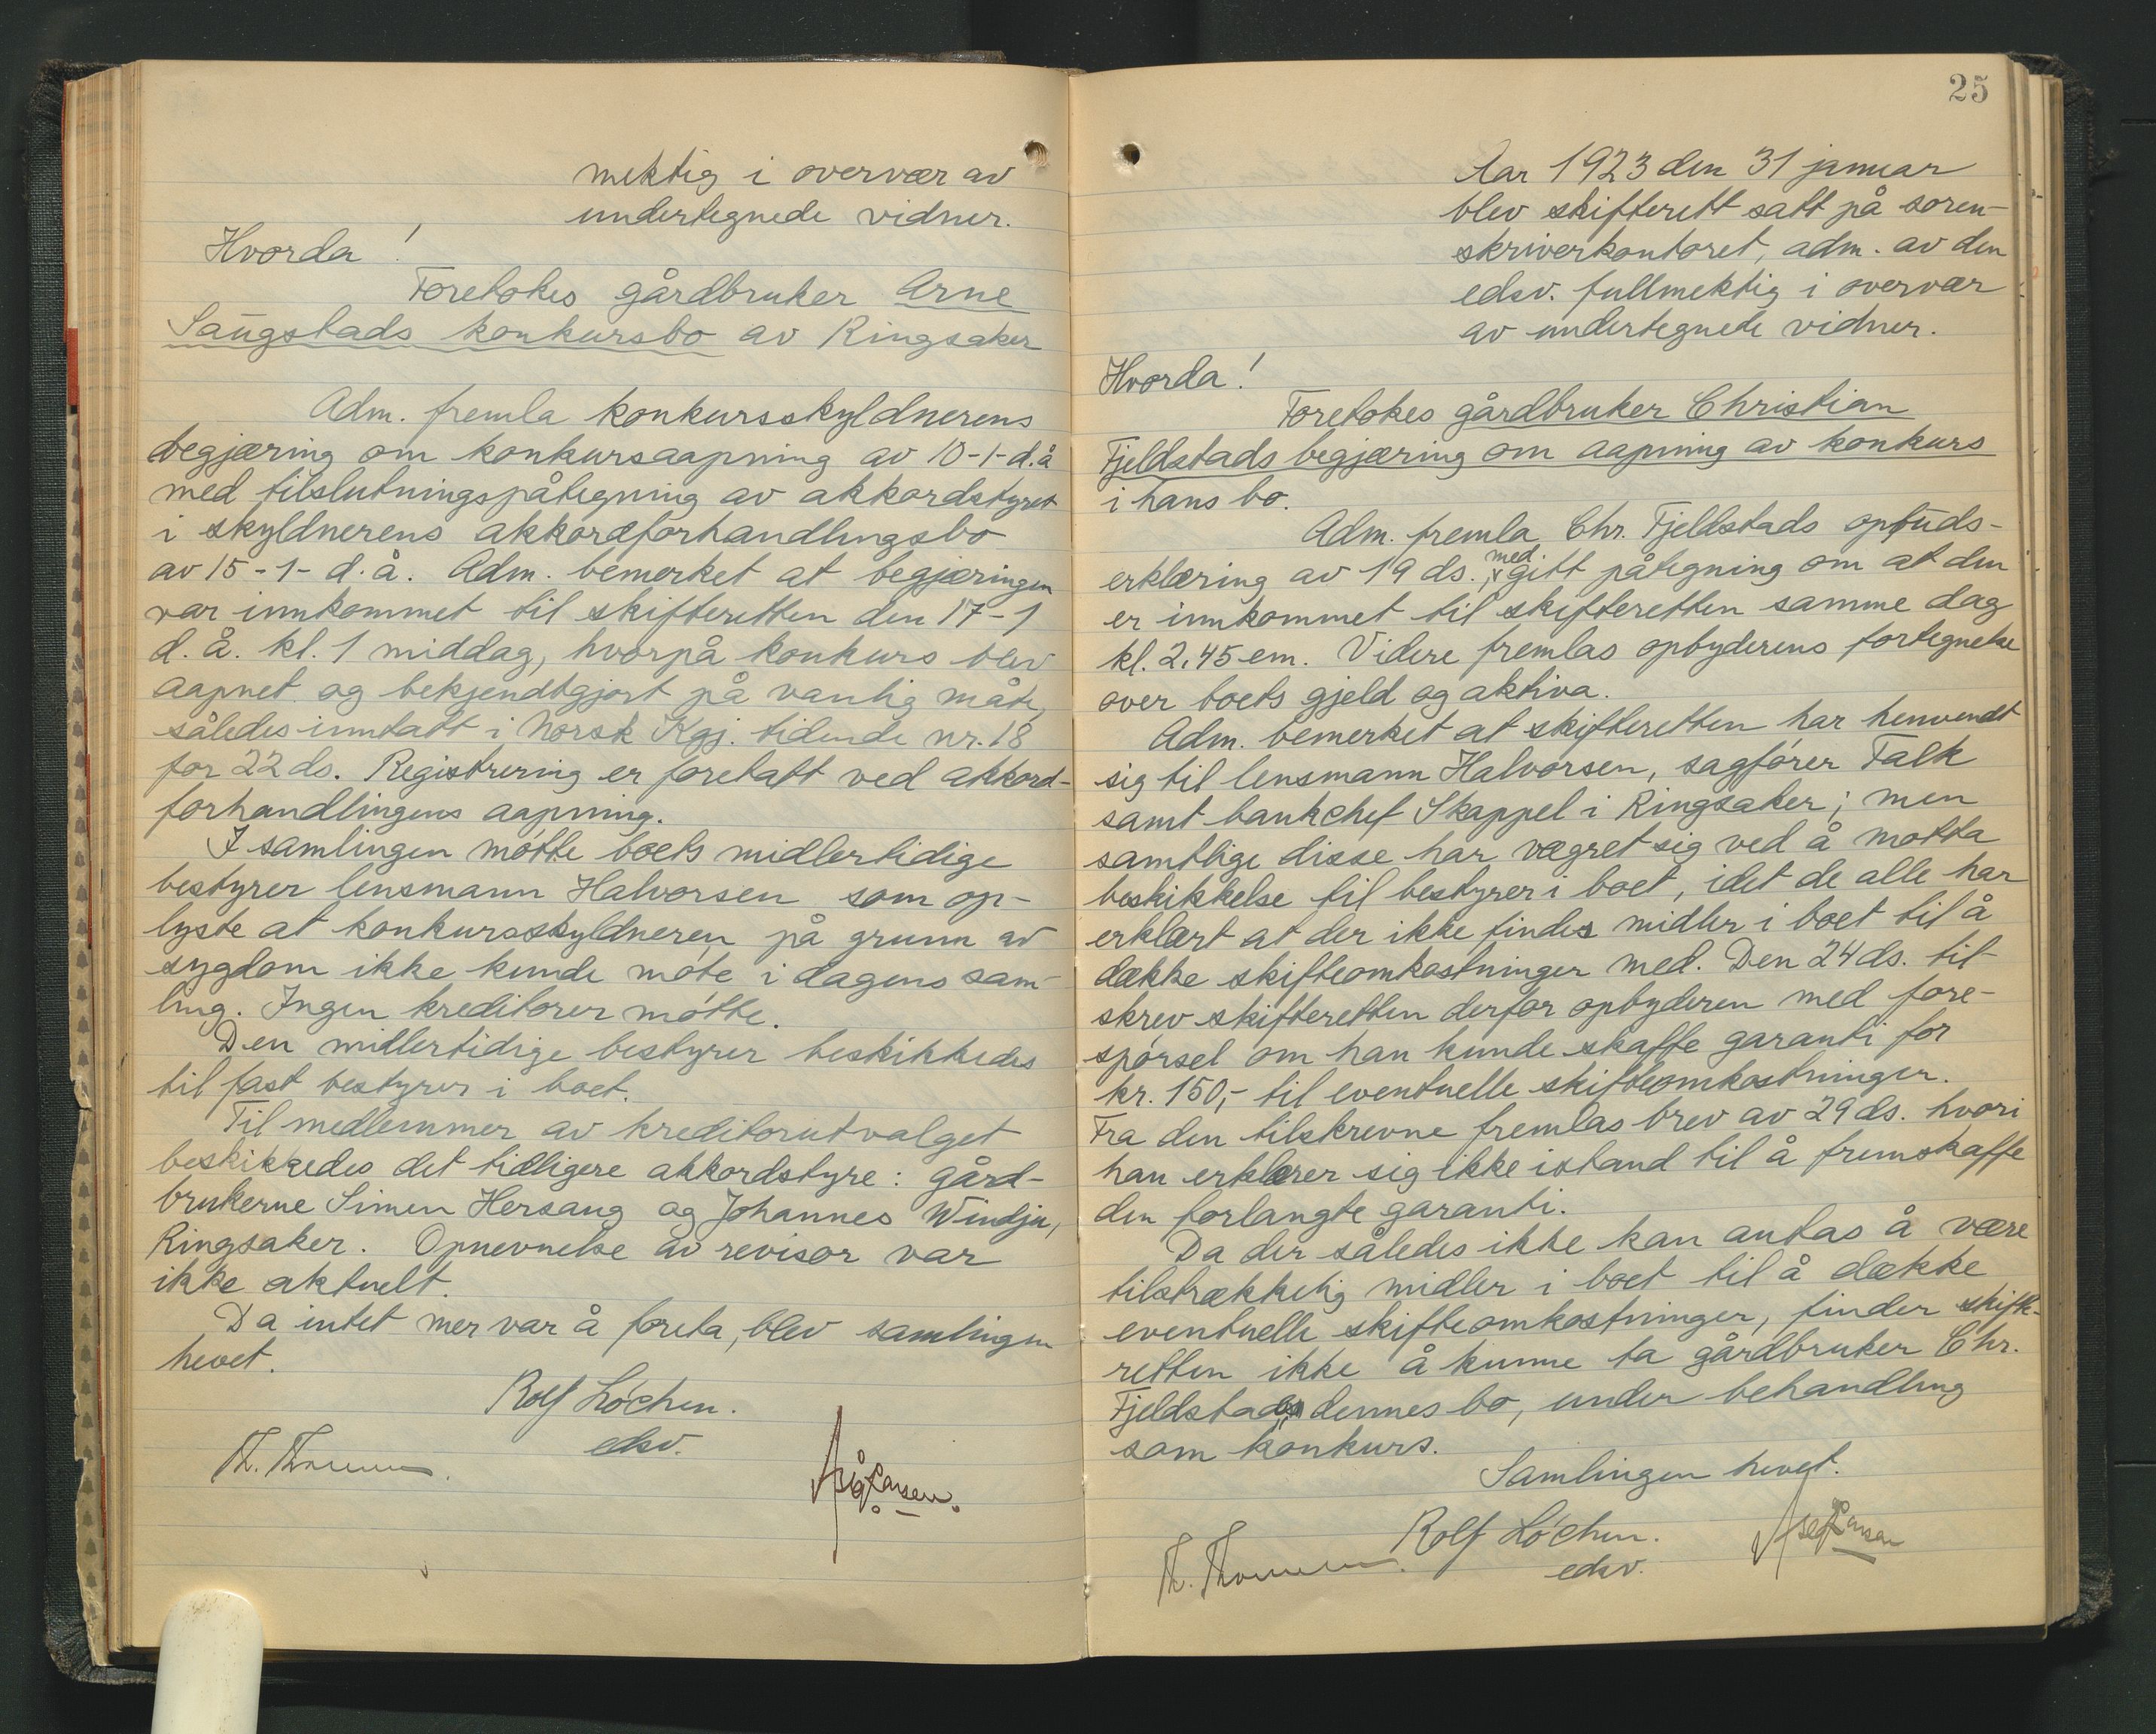 mektig i overvær av
undertegnede vidner.
Hvorda!
Foretokes gårdbruker Arne
Saugstads konkursbo av Ringsaker
Adm. fremla konkursskyldnerens
begjæring om konkursaapning av 10-1-d.å
med tilslutningspåtegning av akkordstyret
i skyldnerens akkordforhandlingsbo
av 15-1-d.å. Adm. bemerket at begjæringen
var innkommet til skifteretten den 17-1
d.å. kl. 1 middag, hvorpå konkurs blev
aapnet og bekjendtgjort på vanlig måte,
således inntatt i Norsk Kgj. tidende nr. 18
for 22 ds. Registrering er foretatt ved akkord-
forhandlingens aapning.
I samlingen møtte boets midlertidige
bestyrer lensmann Halvorsen som op-
lyste at konkursskyldneren på grunn av
sygdom ikke kunde møte i dagens sam-
ling. Ingen kreditorer møtte.
Den midlertidige bestyrer beskikkedes
til fast bestyrer i boet.
Til medlemmer av kreditorutvalget
beskikkedes det tidligere akkordstyre: gård-
brukerne Simen Hersaug og Johannes Windju,
Ringsaker. Opnevnelse av revisor var
ikke aktuelt.
Da intet mer var å foreta, blev samlingen
hevet.
Rolf Løchen.
edsv.
Th.
Larsen.
25
Aar 1923 den 31 januar
blev skifterett satt på soren-
skriverkontoret, adm. av den
edsv. fullmektig i overvær
av undertegnede vidner.
Hvorda!
Foretokes gårdbruker Christian
Fjeldstads begjæring om aapning av konkurs
i hans bo.
Adm. fremla Chr. Fjeldstads opbuds-
erklæring av 19 ds. med gitt påtegning om at den
er innkommet til skifteretten samme dag
kl. 2.45 em. Videre fremlas opbyderens fortegnelse
over boets gjeld og aktiva.
Adm. bemerket at skifteretten har henvendt
sig til lensmann Halvorsen, sagfører Falk
samt bankchef Skappel i Ringsaker; men
samtlige disse har vægret sig ved å motta
beskikkelse til bestyrer i boet, idet de alle har
erklært at der ikke findes midler i boet til å
dække skifteomkostninger med. Den 24 ds. til-
skrev skifteretten derfor opbyderen med fore-
spørsel om han kunde skaffe garanti for
kr. 150,- til eventuelle skifteomkostninger.
Fra den tilskrevne fremlas brev av 29 ds. hvori
han erklærer sig ikke istand til å fremskaffe
den forlangte garanti.
Da der således ikke kan antas å være
tilstrækkelig midler i boet til å dække
eventuelle skifteomkostninger, finder skifte-
retten ikke å kunne ta gårdbruker Chr.
Fjeldstads dennes bo, under behandling
som konkurs.
Samlingen hevet.
Rolf Løchen.
edsv.
Th.
Larsen